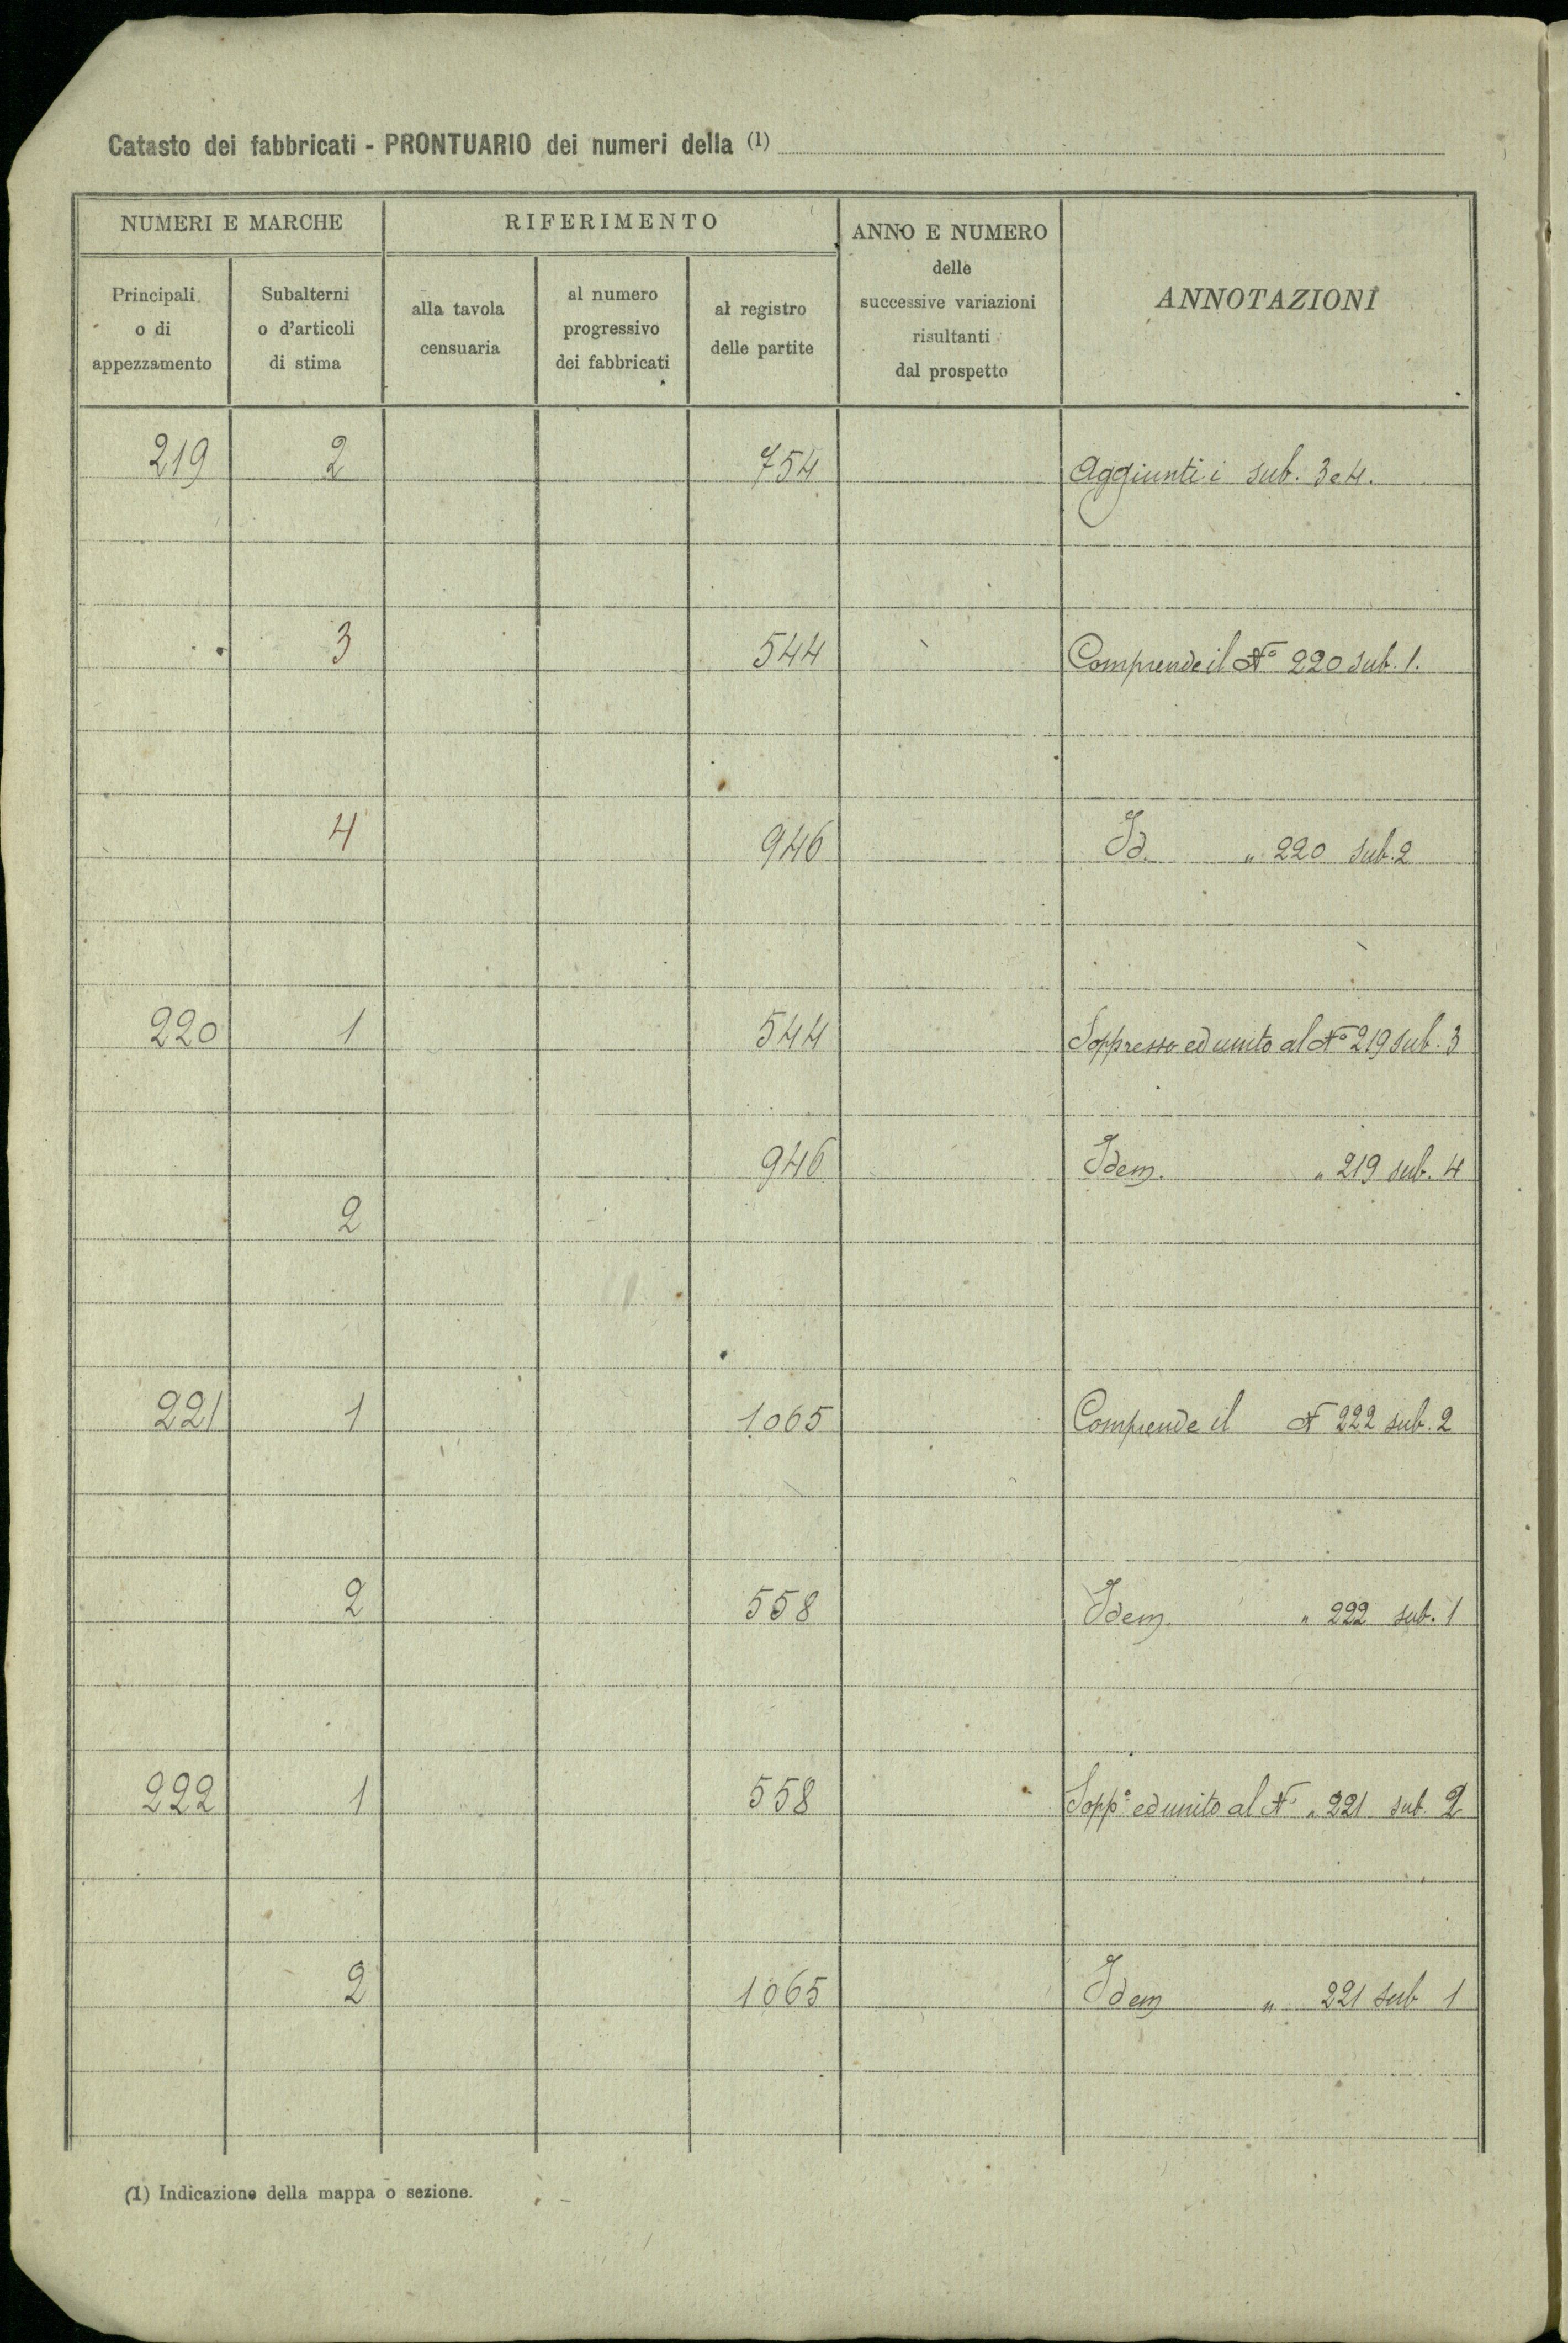 Catasto dei fabbricati - PRONTUARIO dei numeri della (1)
NUMERI E MARCHE
RIFERIMENTO
ANNO E NUMERO
delle
successive variazioni
risultanti
dal prospetto
ANNOTAZIONI
Principali
o di
appezzamento
Subalterni
o d'articoli
di stima
alla tavola
censuaria
al numero
progressivo
dei fabbricati
al registro
delle partite
219 2 754 Aggiunti i sub. 3 e 4.
3 544 Comprende il N° 220 sub. 1.
4 946 Id. " 220 sub. 2
220 1 544 Soppresso ed unito al N° 219 sub. 3
946 Idem. " 219 sub. 4
2
221 1 1065 Comprende il N 222 sub. 2
2 558 Idem. " 222 sub. 1
222 1 558 Sopp° ed unito al N° " 221 sub. 2
2 1065 Idem " 221 sub 1
(1) Indicazione della mappa o sezione.